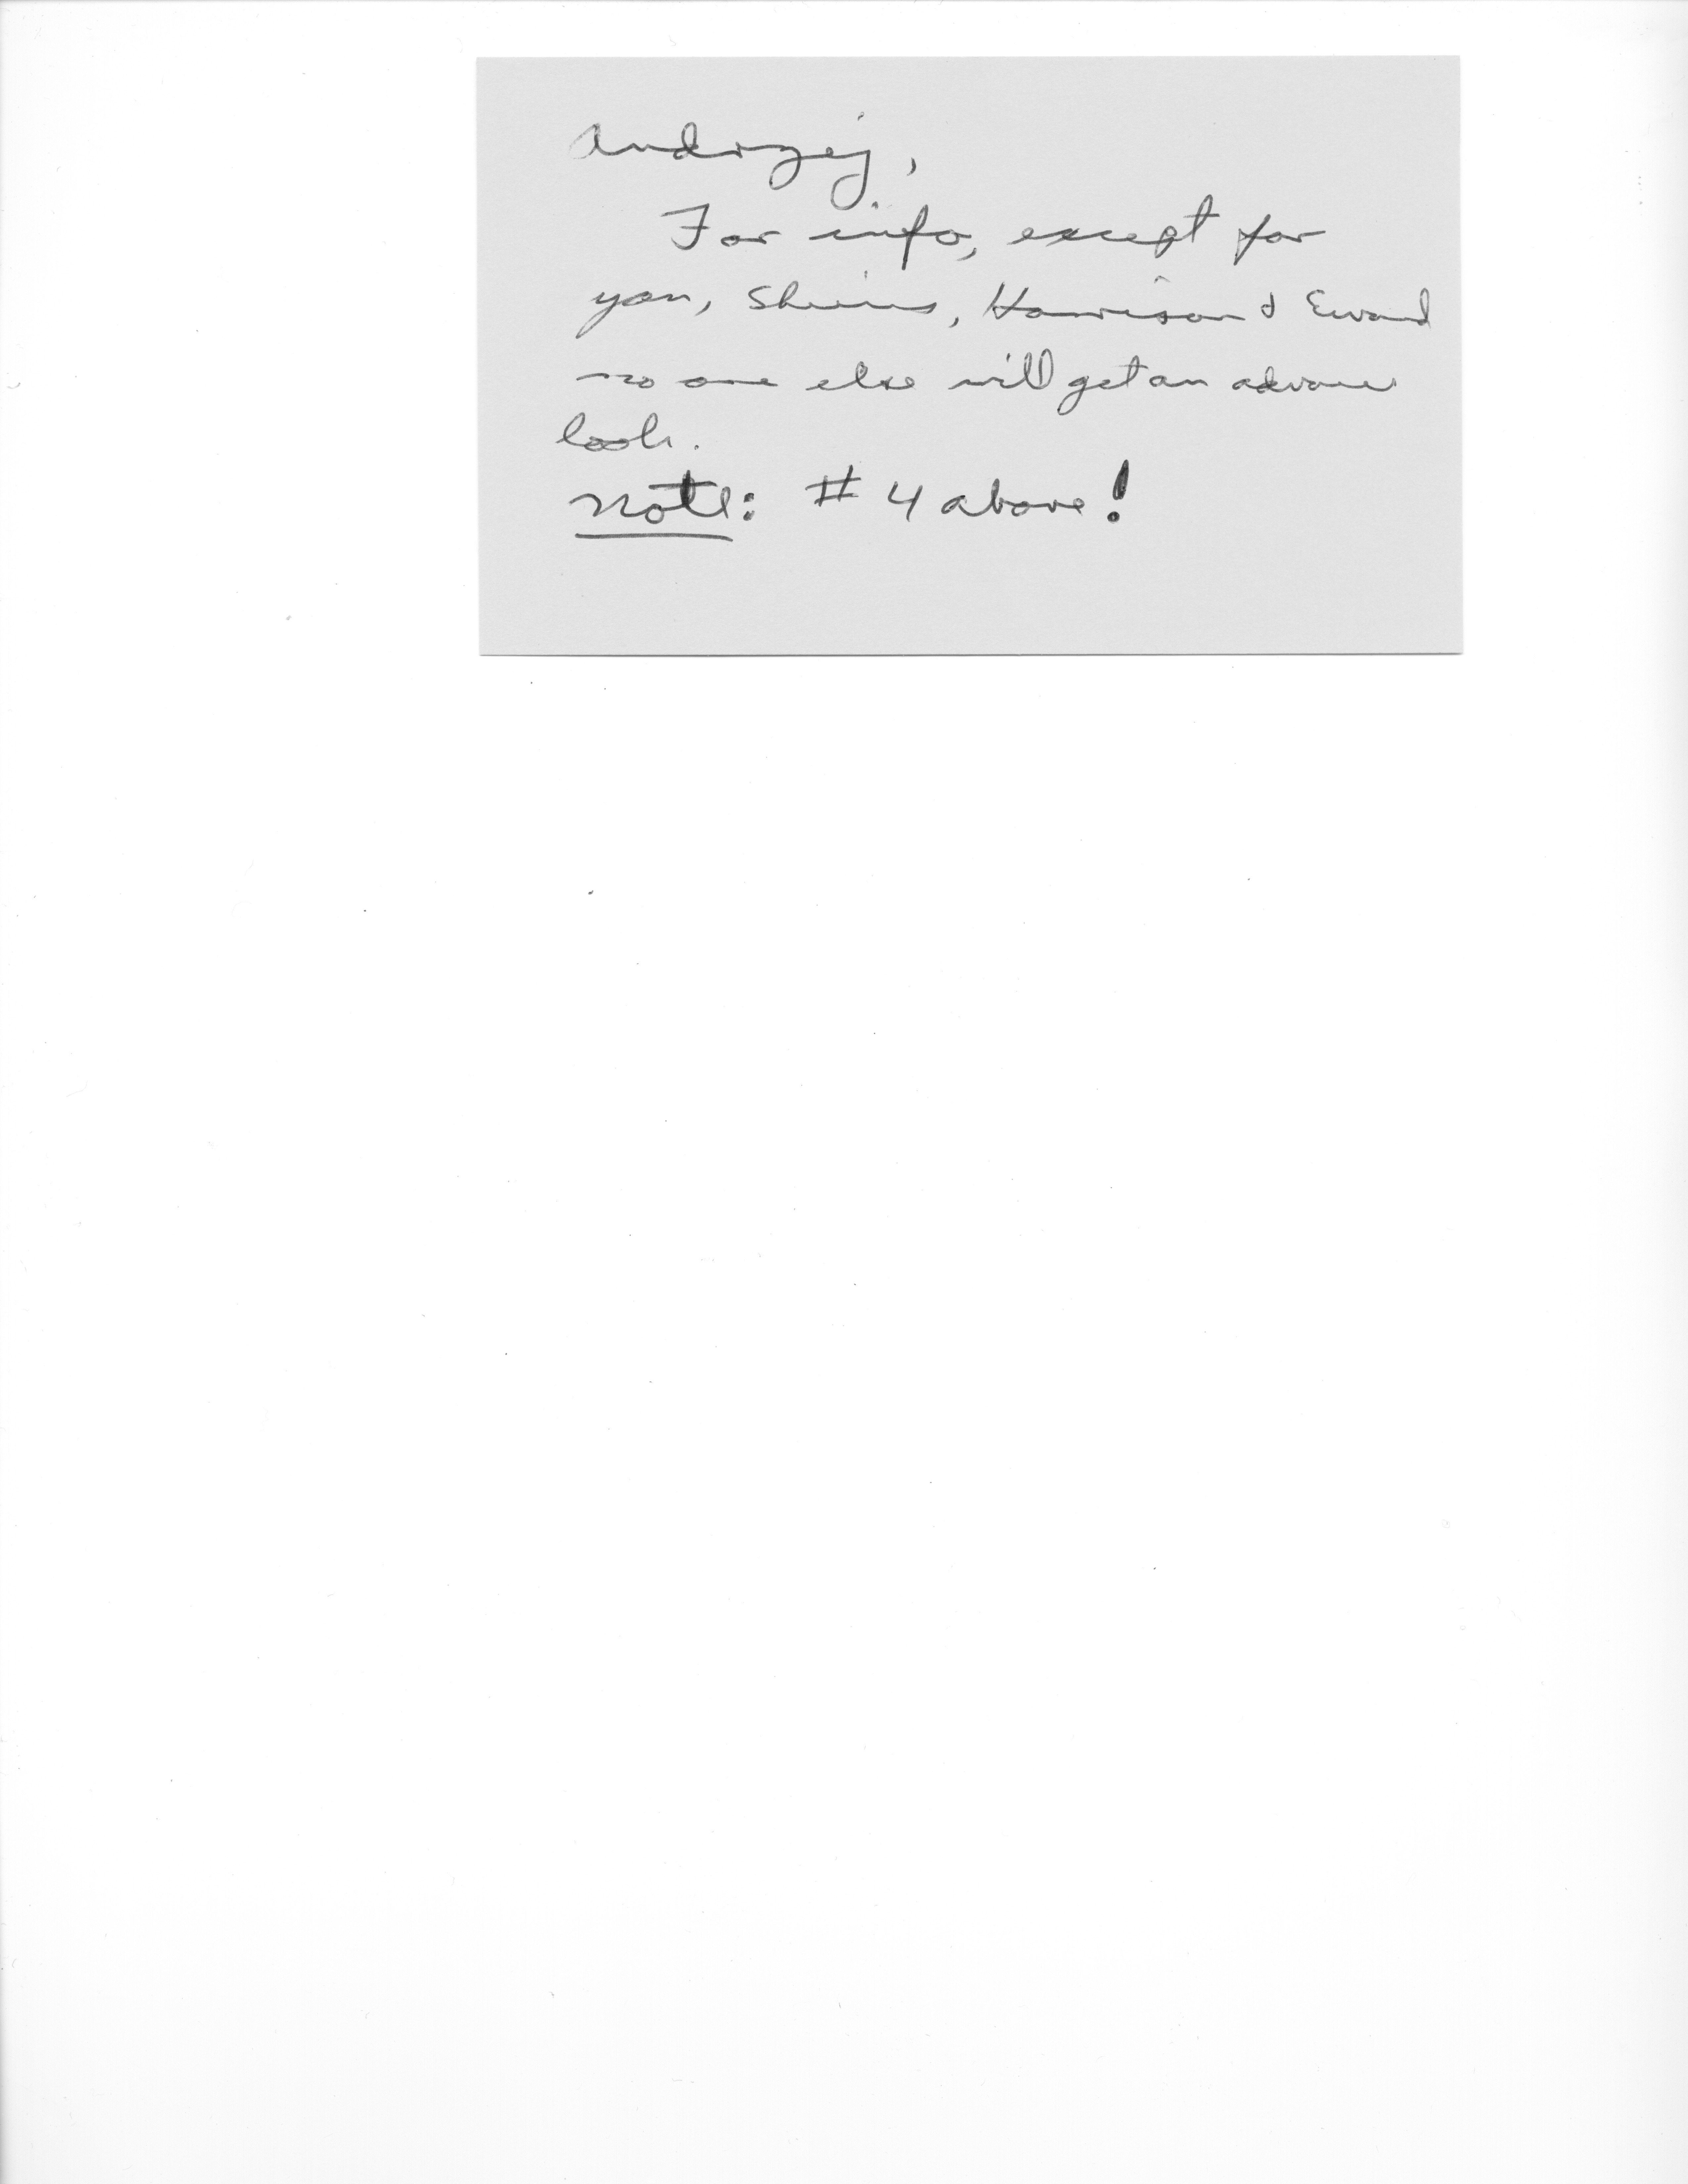 Andrzej,
For info, except for
you, Shinns, Harrison & Ewand
no one else will get an advance
look.
Note: #4 above!